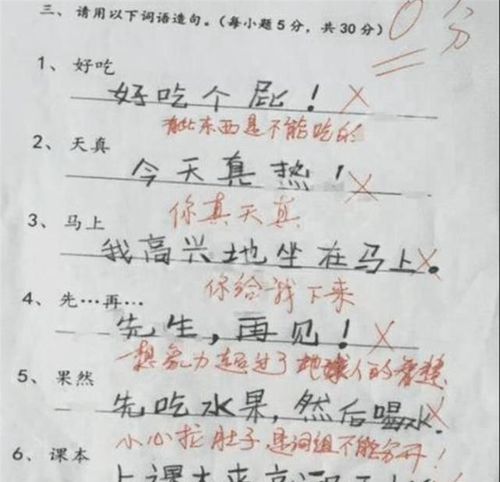 三、请用以下词语造句。(每小题5分，共30分)
0分
1、好吃
好吃个屁！
有些东西是不能吃的
2、天真
今天真热！
你真天真
3、马上
我高兴地坐在马上。
你给我下来
4、先…再…
先生，再见！
想象力超过了地球人的智慧
5、果然
先吃水果，然后喝水。
小心拉肚子是词组不能分开！
6、课本
上课本来